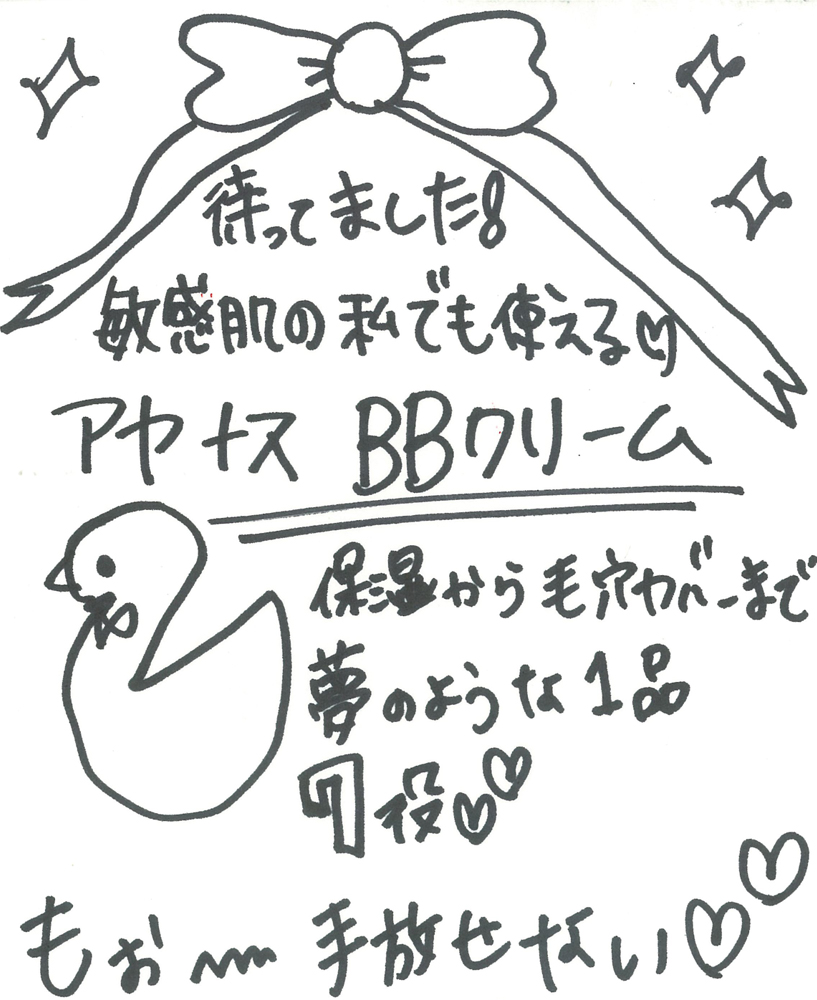 待ってました!
敏感肌の私でも使える♡
アヤナス BBクリーム
保湿から毛穴カバーまで
夢のような1品
7役♡♡
もぉ〜 手放せない♡♡